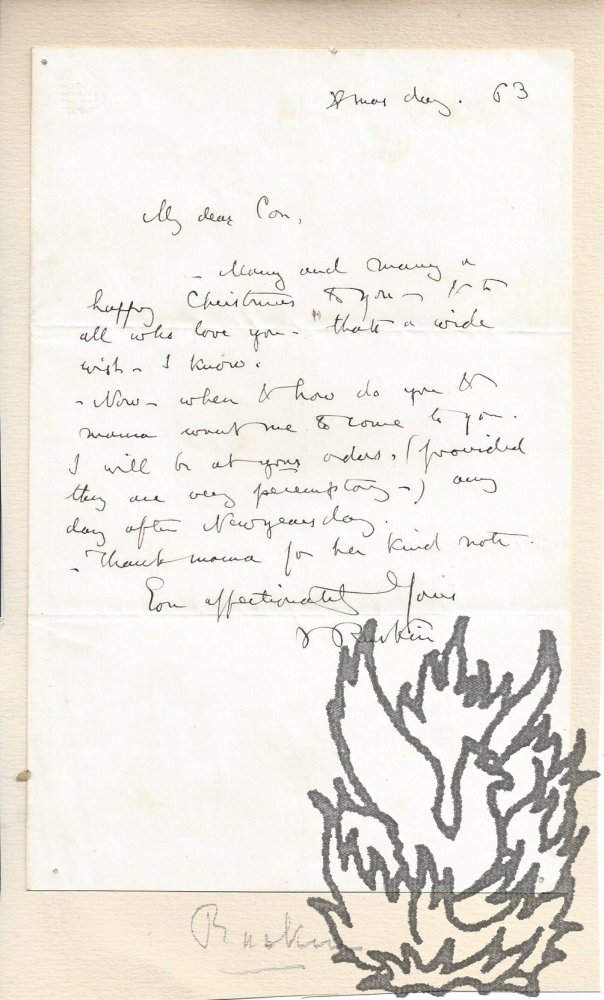 Xmas day. 63
My dear Con,
- Many and many a
happy Christmas to you - & to
all who love you - thats a wide
wish - I know.
- Now - when & how do you &
mama want me to come to you.
I will be at your orders, (provided
they are very peremptory -) any
day after Newyearsday.
- Thank mama for her kind note.
Ever affectionately Yours
J Ruskin
Ruskin